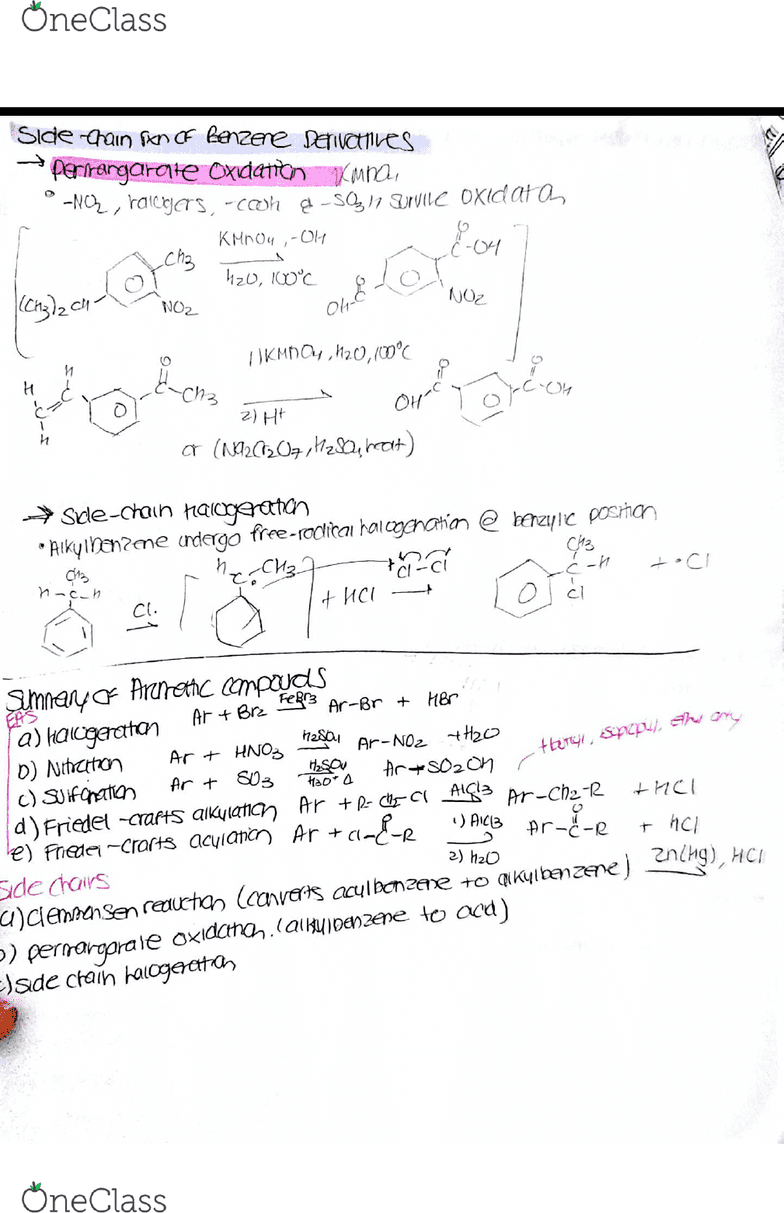 OneClass
Side-Chain Rxn OF Benzene Derivatives
→ Permanganate Oxidation KMnO4
-NO2, halogens, -COOH & -SO3H survive oxidation
KMnO4, -OH
H2O, 100°C
CH3
(CH3)2CH
NO2
O
C-OH
OH-C
O
NO2
1) KMnO4, H2O, 100°C
2) H+
H
H
C
C
H
O
C-CH3
O
OH C
O
C-OH
or (Na2Cr2O7, H2SO4, heat)
→ Side-chain Halogenation
• Alkylbenzene undergo free-radical halogenation @ benzylic position
CH3
H-C-H
Cl·
H C· CH3
+ HCl
Cl-Cl
→
CH3
C-H
Cl
+ ·Cl
Summary of Aromatic compounds
EAS
a) Halogenation Ar + Br2 FeBr3 Ar-Br + HBr
b) Nitration Ar + HNO3 H2SO4 Ar-NO2 + H2O
c) Sulfonation Ar + SO3 H2SO4 H3O+ Δ Ar-SO2OH
isopropyl, ethyl only
d) Friedel-crafts alkylation Ar + R-CH2-Cl AlCl3 Ar-CH2-R + HCl
e) Friedel-Crafts acylation Ar + Cl-C-R 1) AlCl3 2) H2O Ar-C-R + HCl
O
O
Side chains
a) Clemmensen reduction (converts acylbenzene to alkylbenzene) Zn(Hg), HCl
b) permanganate oxidation. (alkylbenzene to acid)
c) side chain halogenation
OneClass